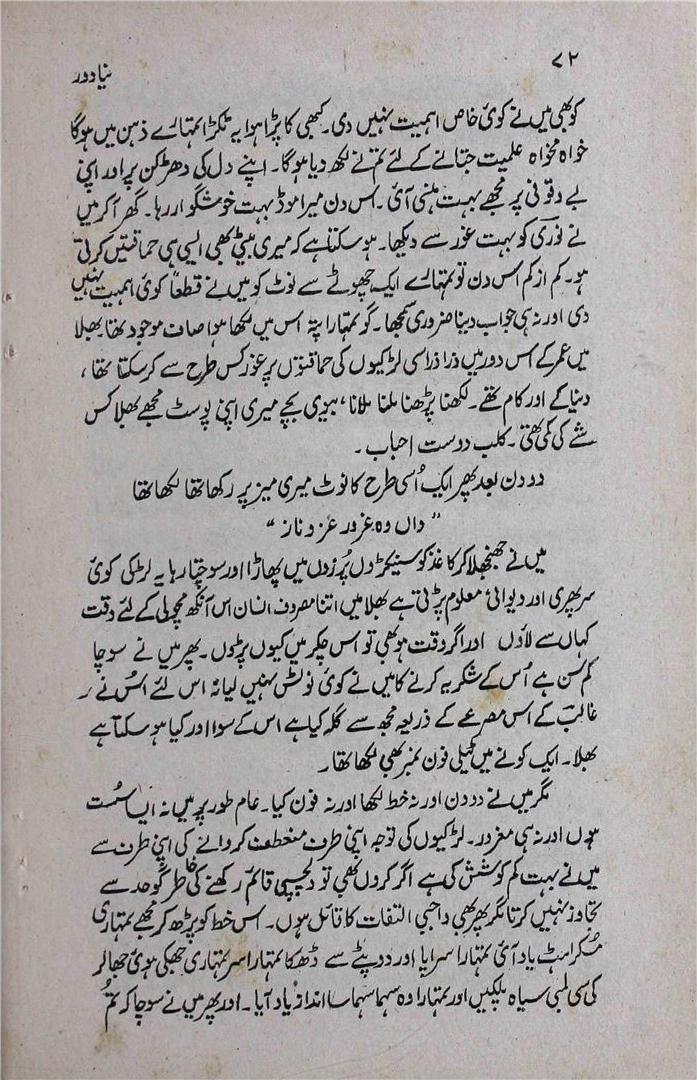 ۷۲
نیا دور
کو بھی میں نے کوئی خاص اہمیت نہیں دی۔ کبھی کا پڑا ہوا یہ ٹکڑا تمہارے ذہن میں ہوگا
خواہ مخواہ علمیت جتانے کے لئے تم نے لکھ دیا ہوگا۔ اپنے دل کی دھڑکن پر اور اپنی
بے وقوفی پر مجھے بہت ہنسی آئی۔ اس دن میرا موڈ بہت خوشگوار رہا۔ گھر آکر میں
نے نوری کو بہت غور سے دیکھا۔ ہو سکتا ہے کہ میری بیٹی بھی ایسی ہی حماقتیں کرتی
ہو۔ کم از کم اس دن تو تمہارے ایک چھوٹے سے نوٹ کو میں نے قطعاً کوئی اہمیت نہیں
دی اور نہ ہی جواب دینا ضروری سمجھا۔ گو تمہارا پتہ اس میں لکھا ہوا صاف موجود تھا۔ بھلا
میں عمر کے اس دور میں ذرا ذرا سی لڑکیوں کی حماقتوں پر غور کس طرح سے کر سکتا تھا،
دنیا کے اور کام تھے۔ لکھنا پڑھنا ملنا ملانا، بیوی بچے میری اپنی پوسٹ مجھے بھلا کس
شے کی کمی تھی۔ کلب دوست احباب۔
دو دن بعد پھر ایک اُسی طرح کا نوٹ میری میز پر رکھا تھا لکھا تھا
”واں وہ غرور عز و ناز“
میں نے جھنجھلا کر کاغذ کو سینکڑوں پُرزوں میں پھاڑا اور سوچتا رہا یہ لڑکی کوئی
سرپھری اور دیوانی معلوم پڑتی ہے بھلا میں اتنا مصروف انسان اس آنکھ مچولی کے لئے وقت
کہاں سے لاؤں اور اگر وقت ہو بھی تو اس چکر میں کیوں پڑوں۔ پھر میں نے سوچا
کم سن ہے اُس کے شکریہ کرنے کا میں نے کوئی نوٹس نہیں لیا نہ اس لئے اس نے
غالب کے اس مصرعے کے ذریعہ مجھ سے گلہ کیا ہے اس کے سوا اور کیا ہو سکتا ہے
بھلا۔ ایک کونے میں ٹیلی فون نمبر بھی لکھا تھا۔
مگر میں نے دو دن اور نہ خط لکھا اور نہ فون کیا۔ عام طور پر میں نہ ایسا سُست
ہوں اور نہ ہی مغرور۔ لڑکیوں کی توجہ اپنی طرف منعطف کروانے کی اپنی طرف سے
میں نے بہت کم کوشش کی ہے اگر کروں بھی تو دلچسپی قائم رکھنے کی خاطر گو حد سے
تجاوز نہیں کرتا مگر پھر بھی واجبی التفات کا قائل ہوں۔ اس خط کو پڑھ کر مجھے تمہاری
مُسکراہٹ یاد آئی تمہارا سراپا اور دوپٹے سے ڈھکا تمہارا سر تمہاری جھکی ہوئی جھالر
کی سی لمبی سیاہ پلکیں اور تمہارا وہ سہما سہما سا انداز یاد آیا۔ اور پھر میں نے سوچا کہ تم